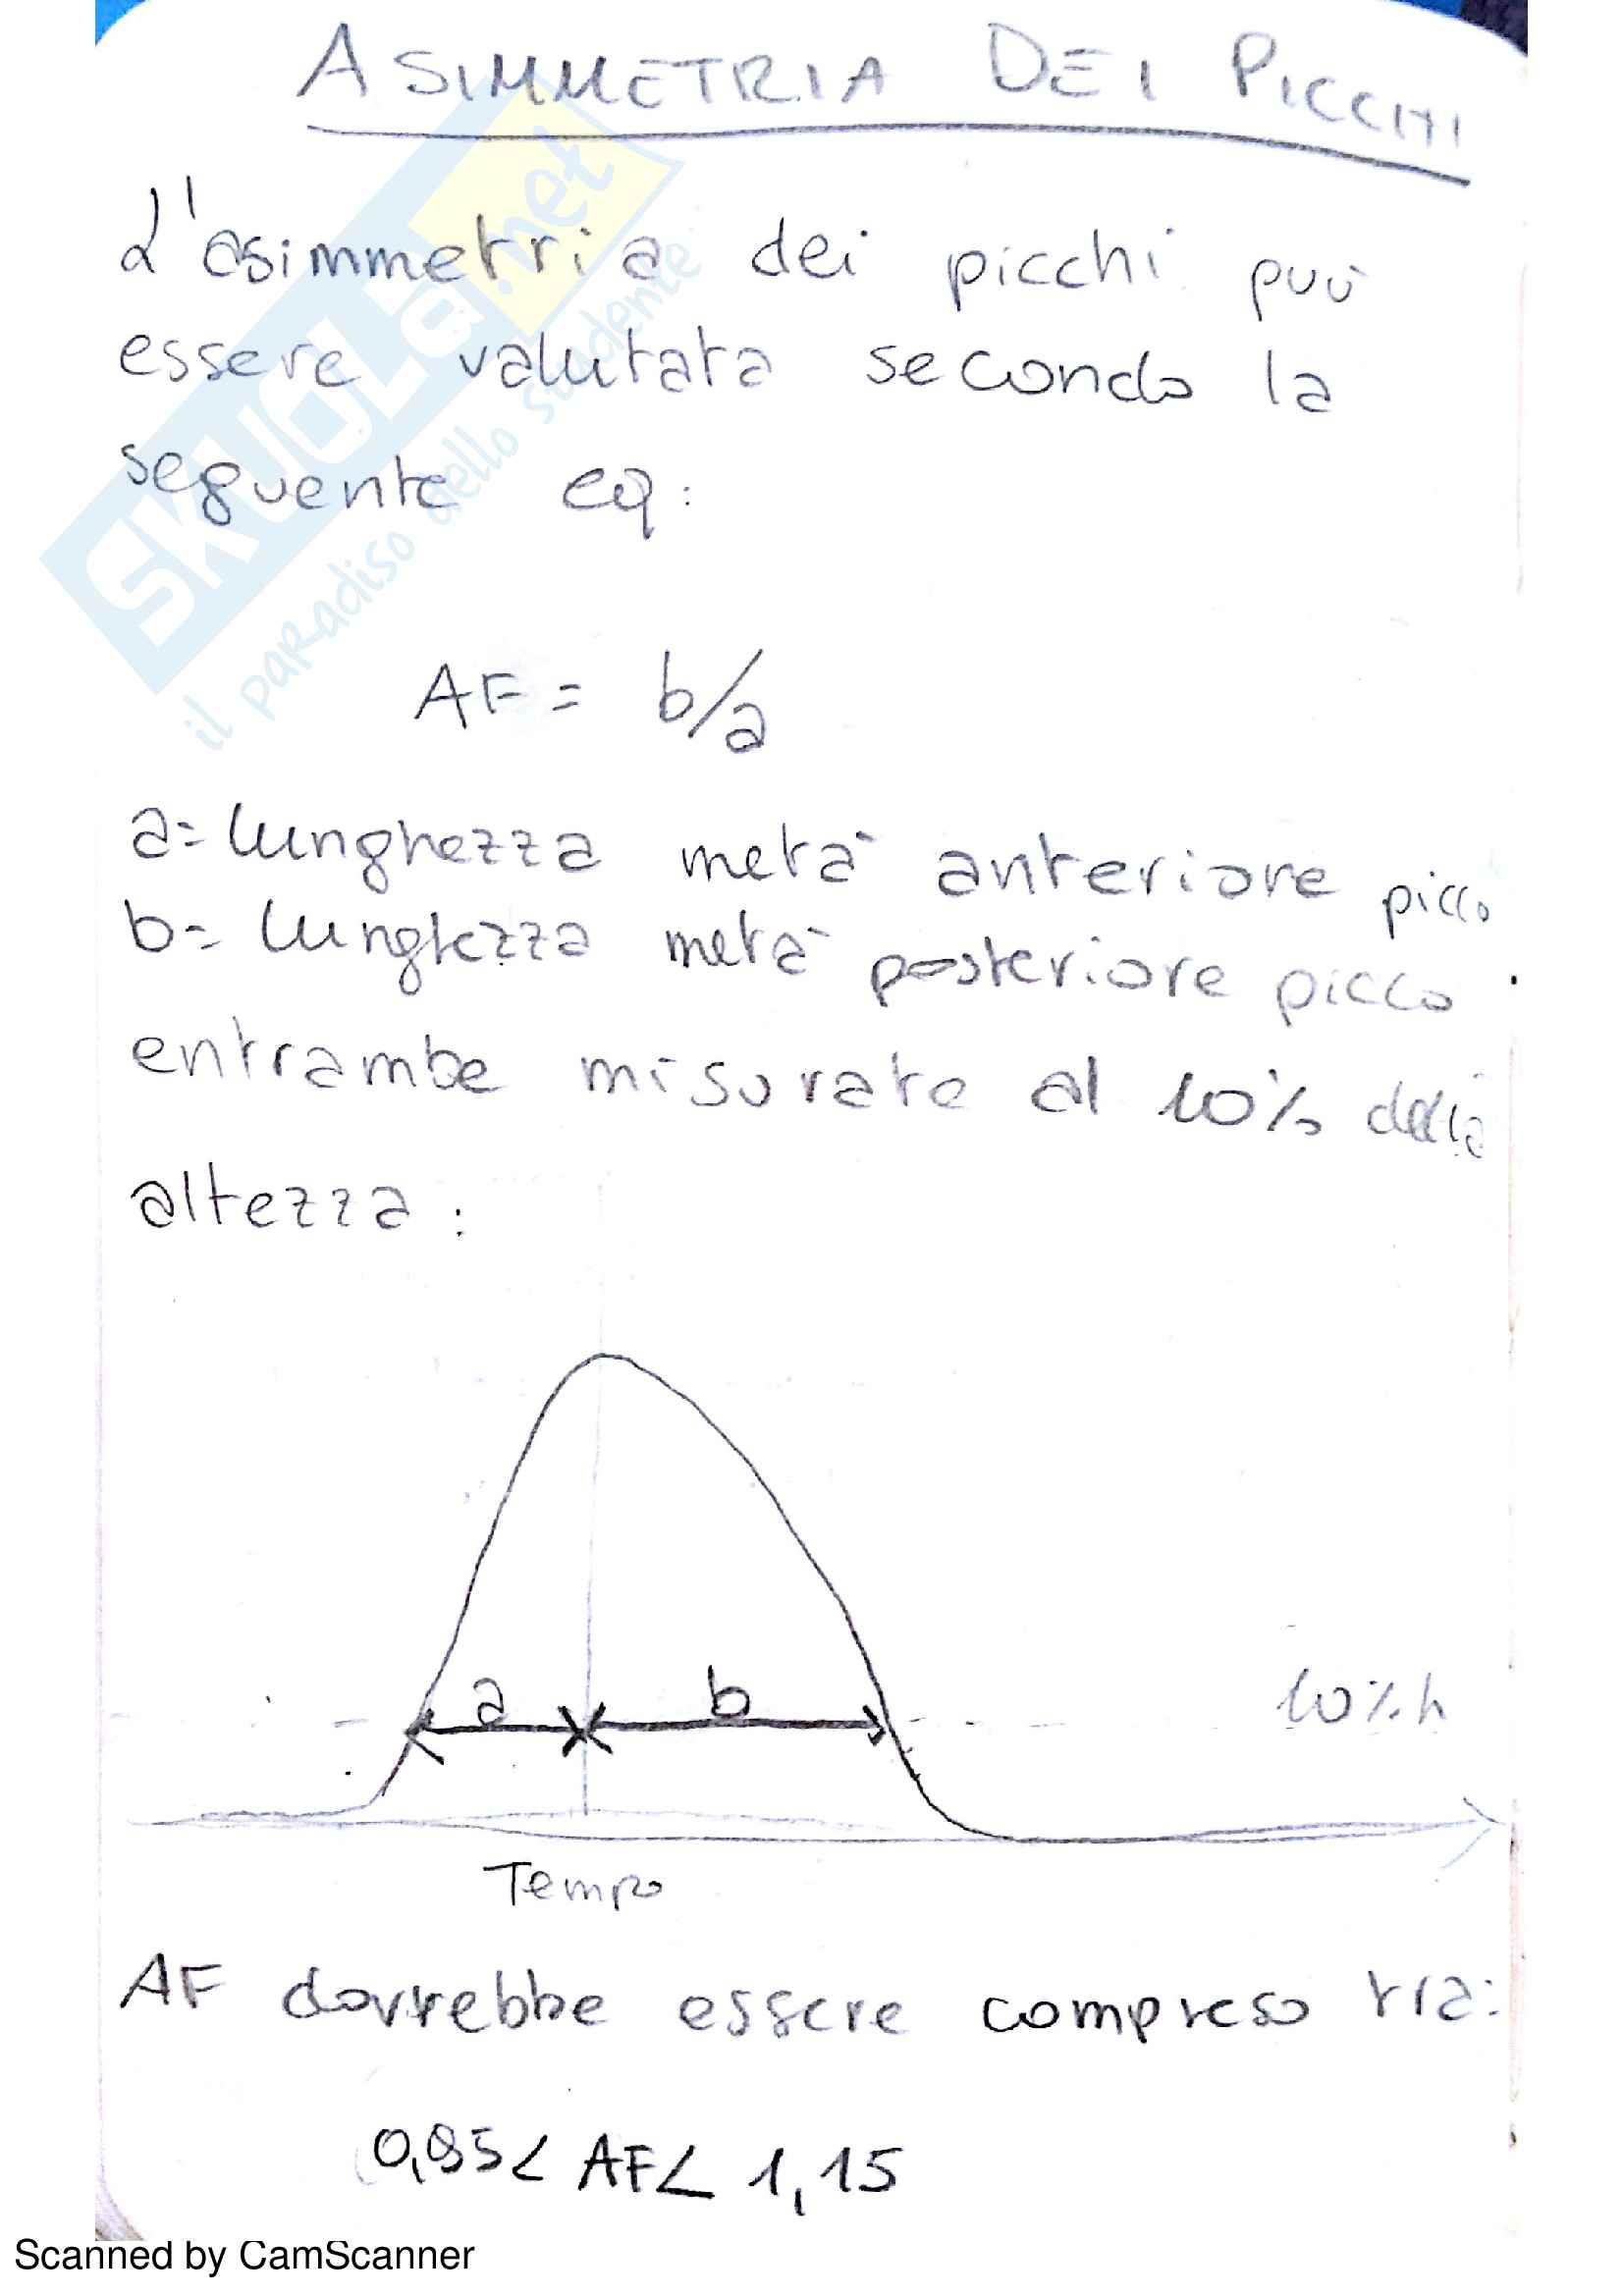 ASIMMETRIA DEI PICCHI
L'asimmetria dei picchi può
essere valutata secondo la
seguente eq:
AF = b/a
a= lunghezza metà anteriore picco
b= lunghezza metà posteriore picco
entrambe misurate al 10% della
altezza:
a b
10% h
Tempo
AF dovrebbe essere compreso tra:
0,85< AF< 1,15
SKUOLa.net
il paradiso dello studente
Scanned by CamScanner